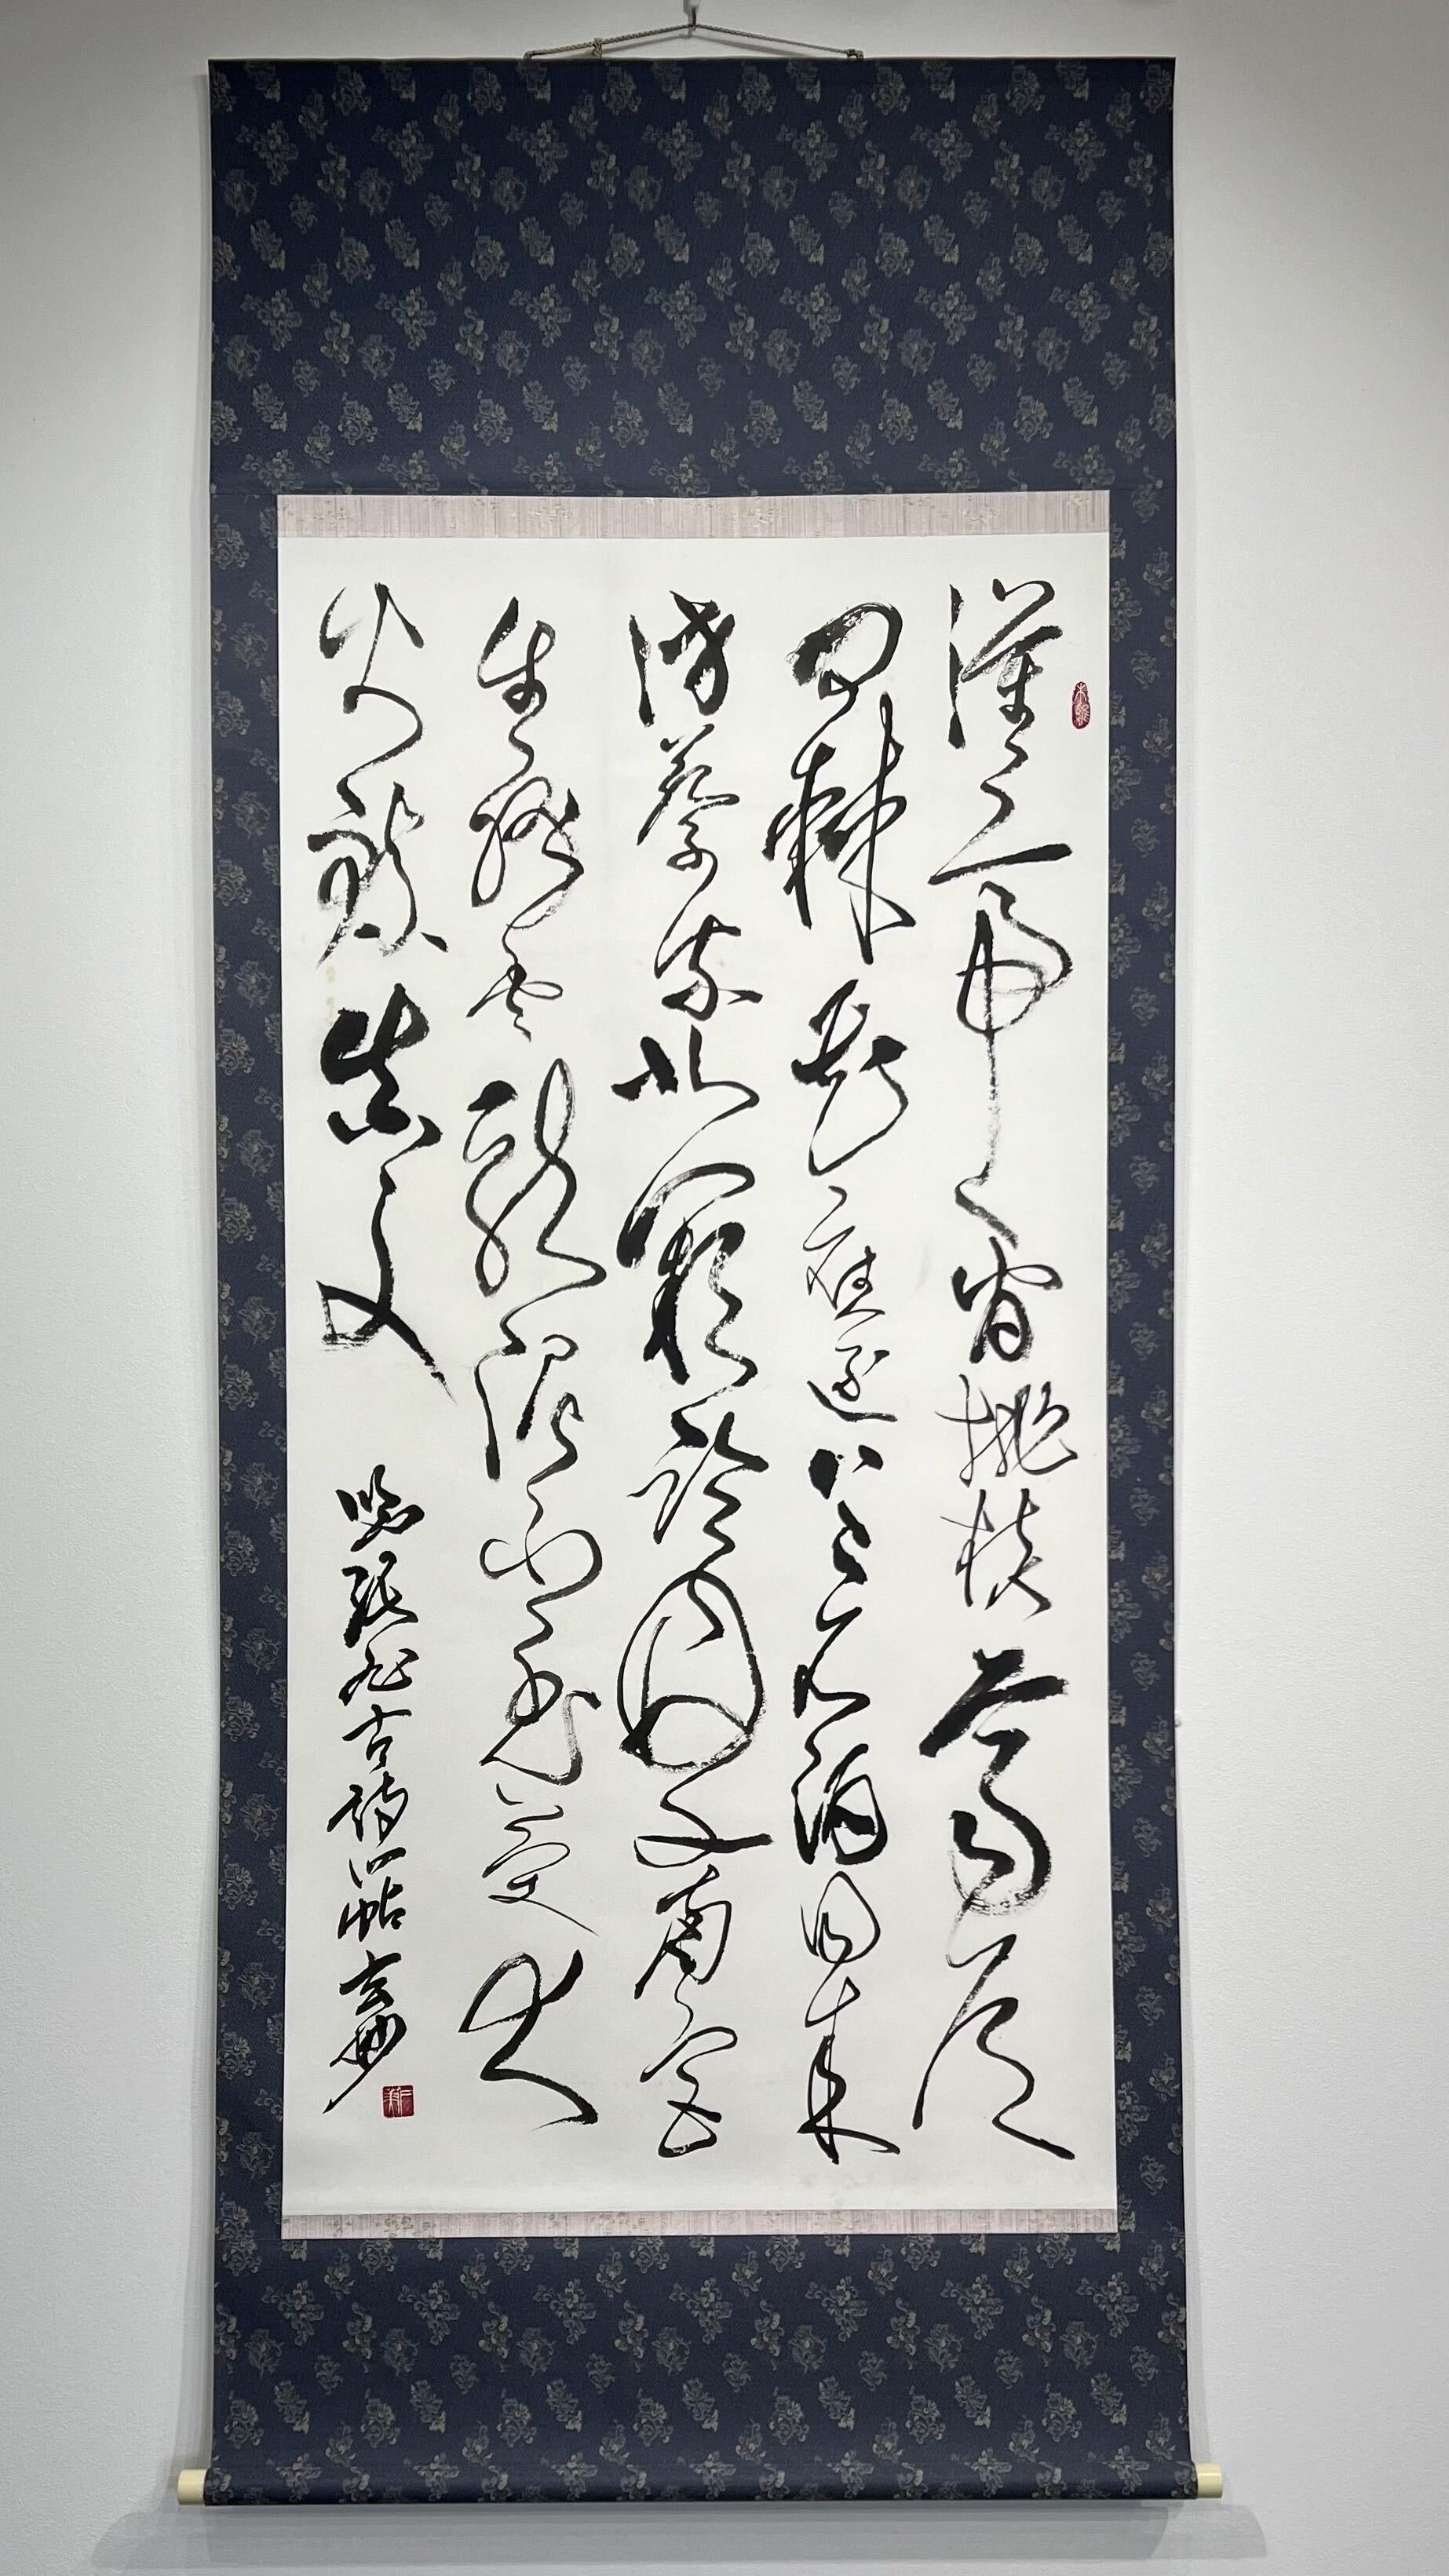 漢帝看桃核齊侯
問棗花應逐上元酒同來
訪蔡家北闕臨丹水南宮
生絳雲龍泥印玉簡大
火煉真文
臨張旭古詩四帖玄妙